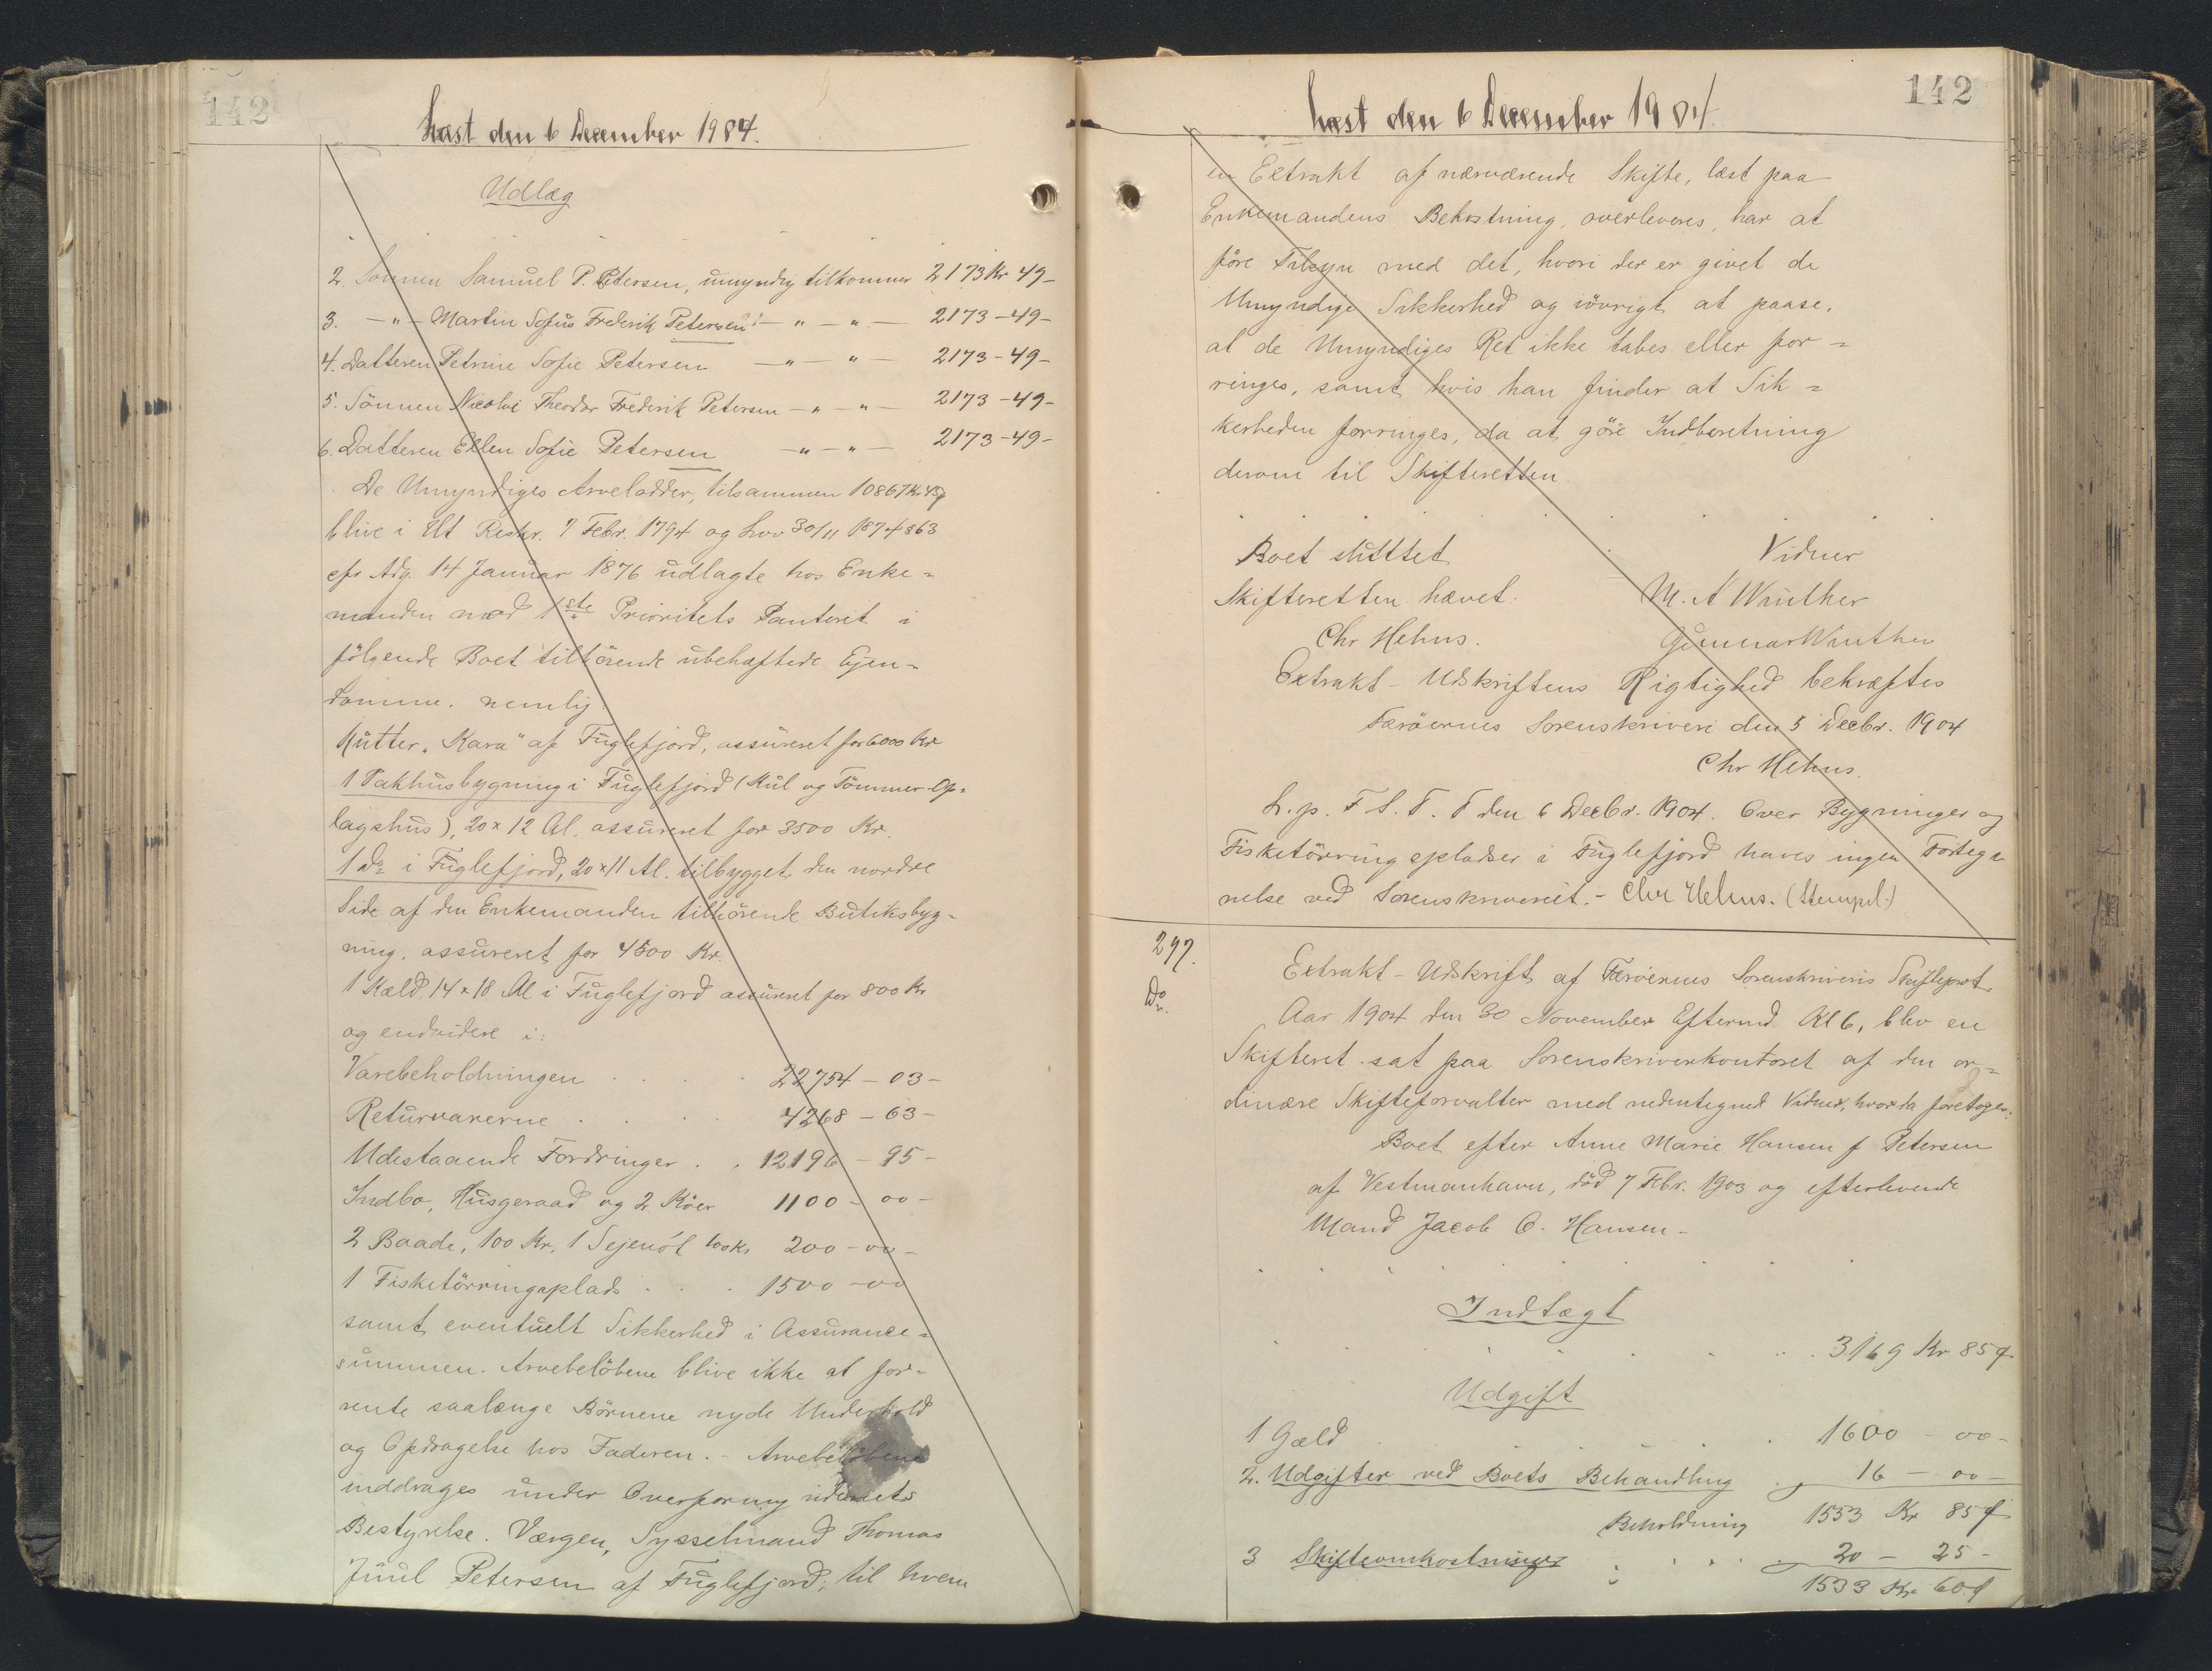 142
Læst den 6 December 1904.
Udlæg
2. Sönnen Samuel P. Petersen, umyndig tilkommer 2173 Kr 49-
3. -"- Martin Sofus Frederik Petersen -"-"- 2173-49-
4. Datteren Petrine Sofie Petersen -"-"- 2173-49-
5. Sönnen Nicolai Theodor Frederik Petersen -"-"- 2173-49-
6. Datteren Ellen Sofie Petersen -"-"- 2173-49-
De Umyndiges Arvelodder, tilsammen 10867 Kr 45
blive i Ht Reskr. 7 Febr. 1794 og Lov 30/11 1874 § 63
cfr Adg. 14 Januar 1876 udlagte hos Enke=
manden mod 1ste Prioritets Panteret i
fölgende Boet tilhörende ubehæftede Ejen=
domme, nemlig:
Kutter "Kara" af Fuglefjord, assureret for 6000 Kr
1 Pakhusbygning i Fuglefjord (Kul og Tömmer-Op=
lagshus), 20 x 12 Al. assureret for 3500 Kr.
1 Do i Fuglefjord, 20 x 11 Al. tilbygget den nordre
Side af den Enkemanden tilhörende Butiksbyg=
ning, assureret for 4500 Kr.
1 Kæld. 14 x 18 Al i Fuglefjord assureret for 800 Kr
og endvidere i:
Varebeholdningen 22754-03-
Returvarerne 4268-63-
Udestaaende Fordringer 12196-95-
Indbo, Husgeraad og 2 Köer 1100-00-
2 Baade, 100 Kr, 1 Sejenót 100 Kr 200-00-
1 Fisketörringsplads 1500-00
samt eventuelt Sikkerhed i Assurance=
summen. Arvebelöbene blive ikke at for=
rente saalænge Börnene nyde Underhold
og Opdragelse hos Faderen. - Arvebelöbene
inddrages under Overformynderiets
Bestyrelse. Værgen, Sysselmand Thomas
Juul Petersen af Fuglefjord, til hvem
142
Læst den 6 December 1904.
en Extrakt af nærværende Skifte, læst paa
Enkemandens Bekostning, overleveres, har at
före Tilsyn med det, hvori der er givet de
Umyndige Sikkerhed og iövrigt at paase,
at de Umyndiges Ret ikke tabes eller for=
ringes, samt hvis han finder at Sik=
kerheden forringes, da at göre Indberetning
derom til Skifteretten
Boet sluttet Vidner
Skifteretten hævet. M. A Winther
Chr Hehus. Gunnar Winther
Extrakt-Udskriftens Rigtighed bekræftes
Færöernes Sorenskriveri den 5 Decbr. 1904
Chr Hehus.
L. p. F S. T. T den 6 Decbr. 1904. Over Bygninger og
Fisketörringspladser i Fuglefjord haves ingen Forteg=
nelse ved Sorenskriveriet. - Chr Hehus. (Stempel.)
297.
Do.
Extrakt-Udskrift af Færöernes Sorenskriveris Skifteprot.
Aar 1904 den 30 November Efterm. Kl 6, blev en
Skifteret sat paa Sorenskriverkontoret af den or=
dinære Skifteforvalter med nedentegned Vidner, hvor da foretoges:
Boet efter Anne Marie Hansen f Petersen
af Vestmanhavn, död 7 Febr. 1903 og efterlevende
Mand Jacob O. Hansen -
Indtægt
3169 Kr 85
Udgift
1 Gæld 1600-00-
2. Udgifter ved Boets Behandling 16-00-
Beholdning 1553 Kr 85
3 Skifteomkostninger 20-25-
1533 Kr 60